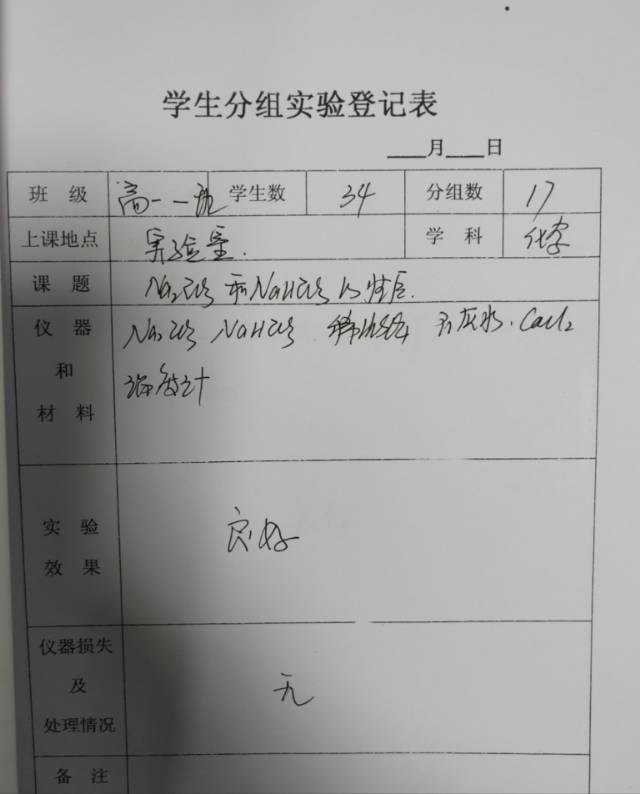 学生分组实验登记表
月 日
班 级 高一一班 学生数 34 分组数 17
上课地点 实验室. 学 科 化学
课 题 Na₂CO₃ 和 NaHCO₃ 的性质.
仪 器 Na₂CO₃ NaHCO₃ 稀盐酸 石灰水. CaCl₂
和 温度计
材 料
实 验 良好
效 果
仪器损失
及 无
处理情况
备 注